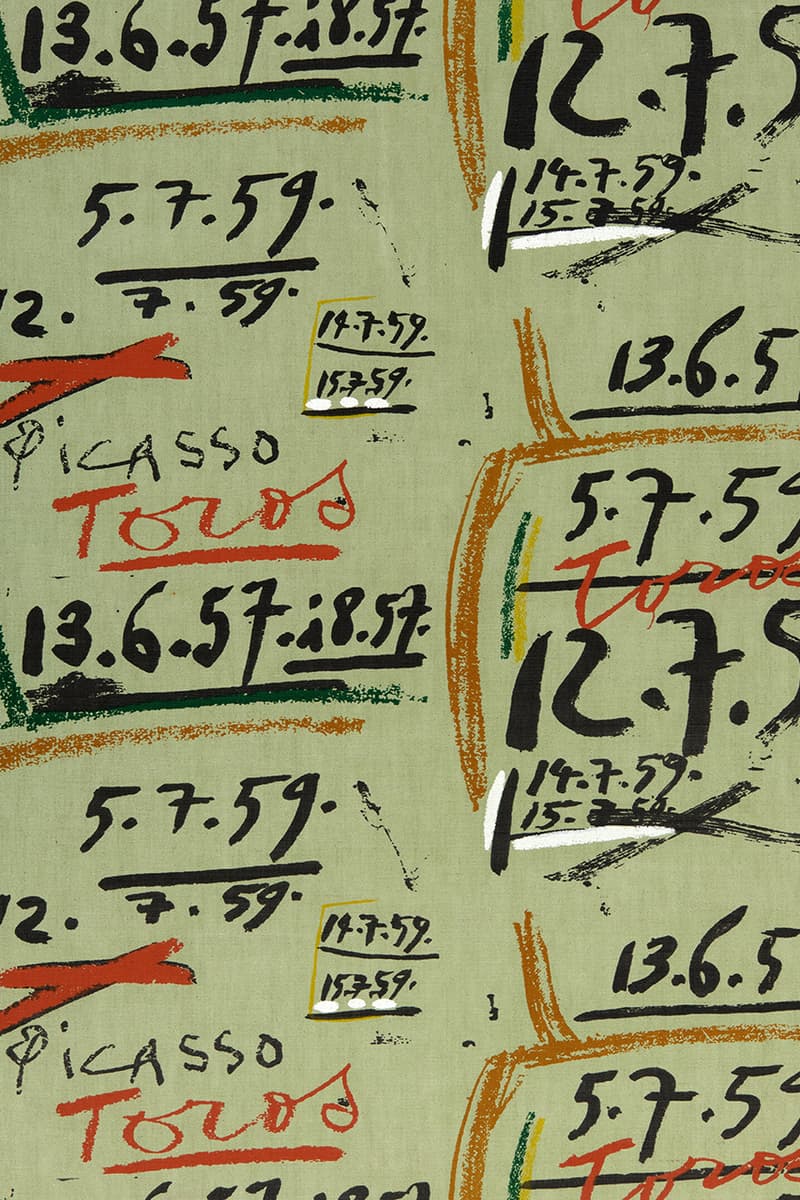 13.6.57.i8.57.
5.7.59.
12. 7.59.
14.7.59.
15.7.59.
PiCASSO
Toros
13.6.57.i8.57.
5.7.59.
12. 7.59.
14.7.59.
15.7.59.
PiCASSO
Toros
12.7.5
14.7.59.
15.7.59.
13.6.5
5.7.59
Toros
12.7.5
14.7.59.
15.7.59.
13.6.5
5.7.59
Toros